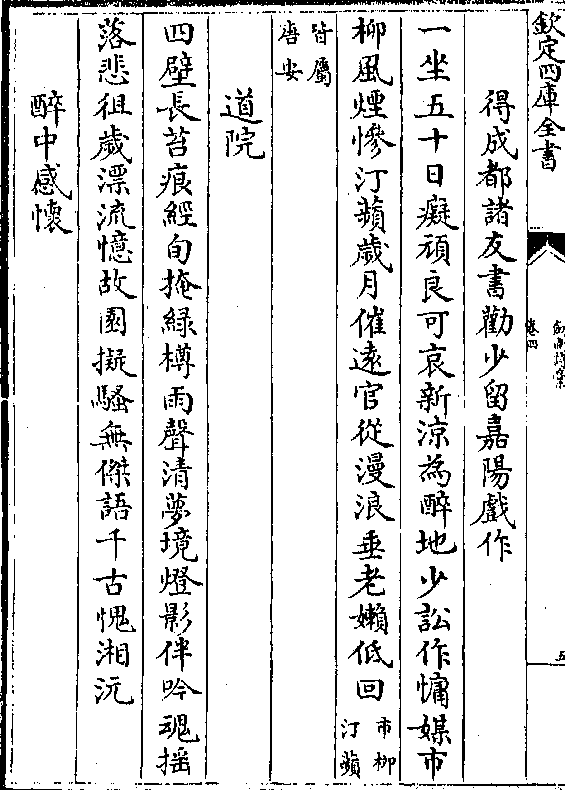 欽定四庫全書
卷四
得成都諸友書勸少留嘉陽戲作
一坐五十日癡頑良可哀新涼為醉地少訟作慵媒市
柳風煙慘汀蘋歲月催遠官從漫浪垂老嬾低回市柳汀蘋
皆屬唐安
道院
四壁長苔痕經旬掩綠樽雨聲清夢境燈影伴吟魂揺
落悲徂歲漂流憶故園擬騷無傑語千古愧湘沅
醉中感懷